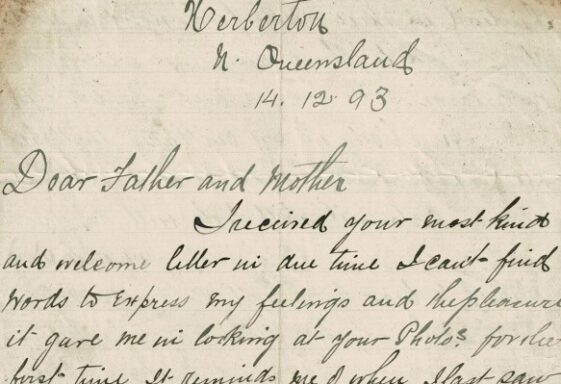 Herberton
N. Queensland
14. 12 93
Dear Father and Mother
I recived your most kind
and welcome letter in due time I cant find
words to express my feelings and the pleasure
it gave me in looking at your Photos. for the
first time it reminds me of when I last saw